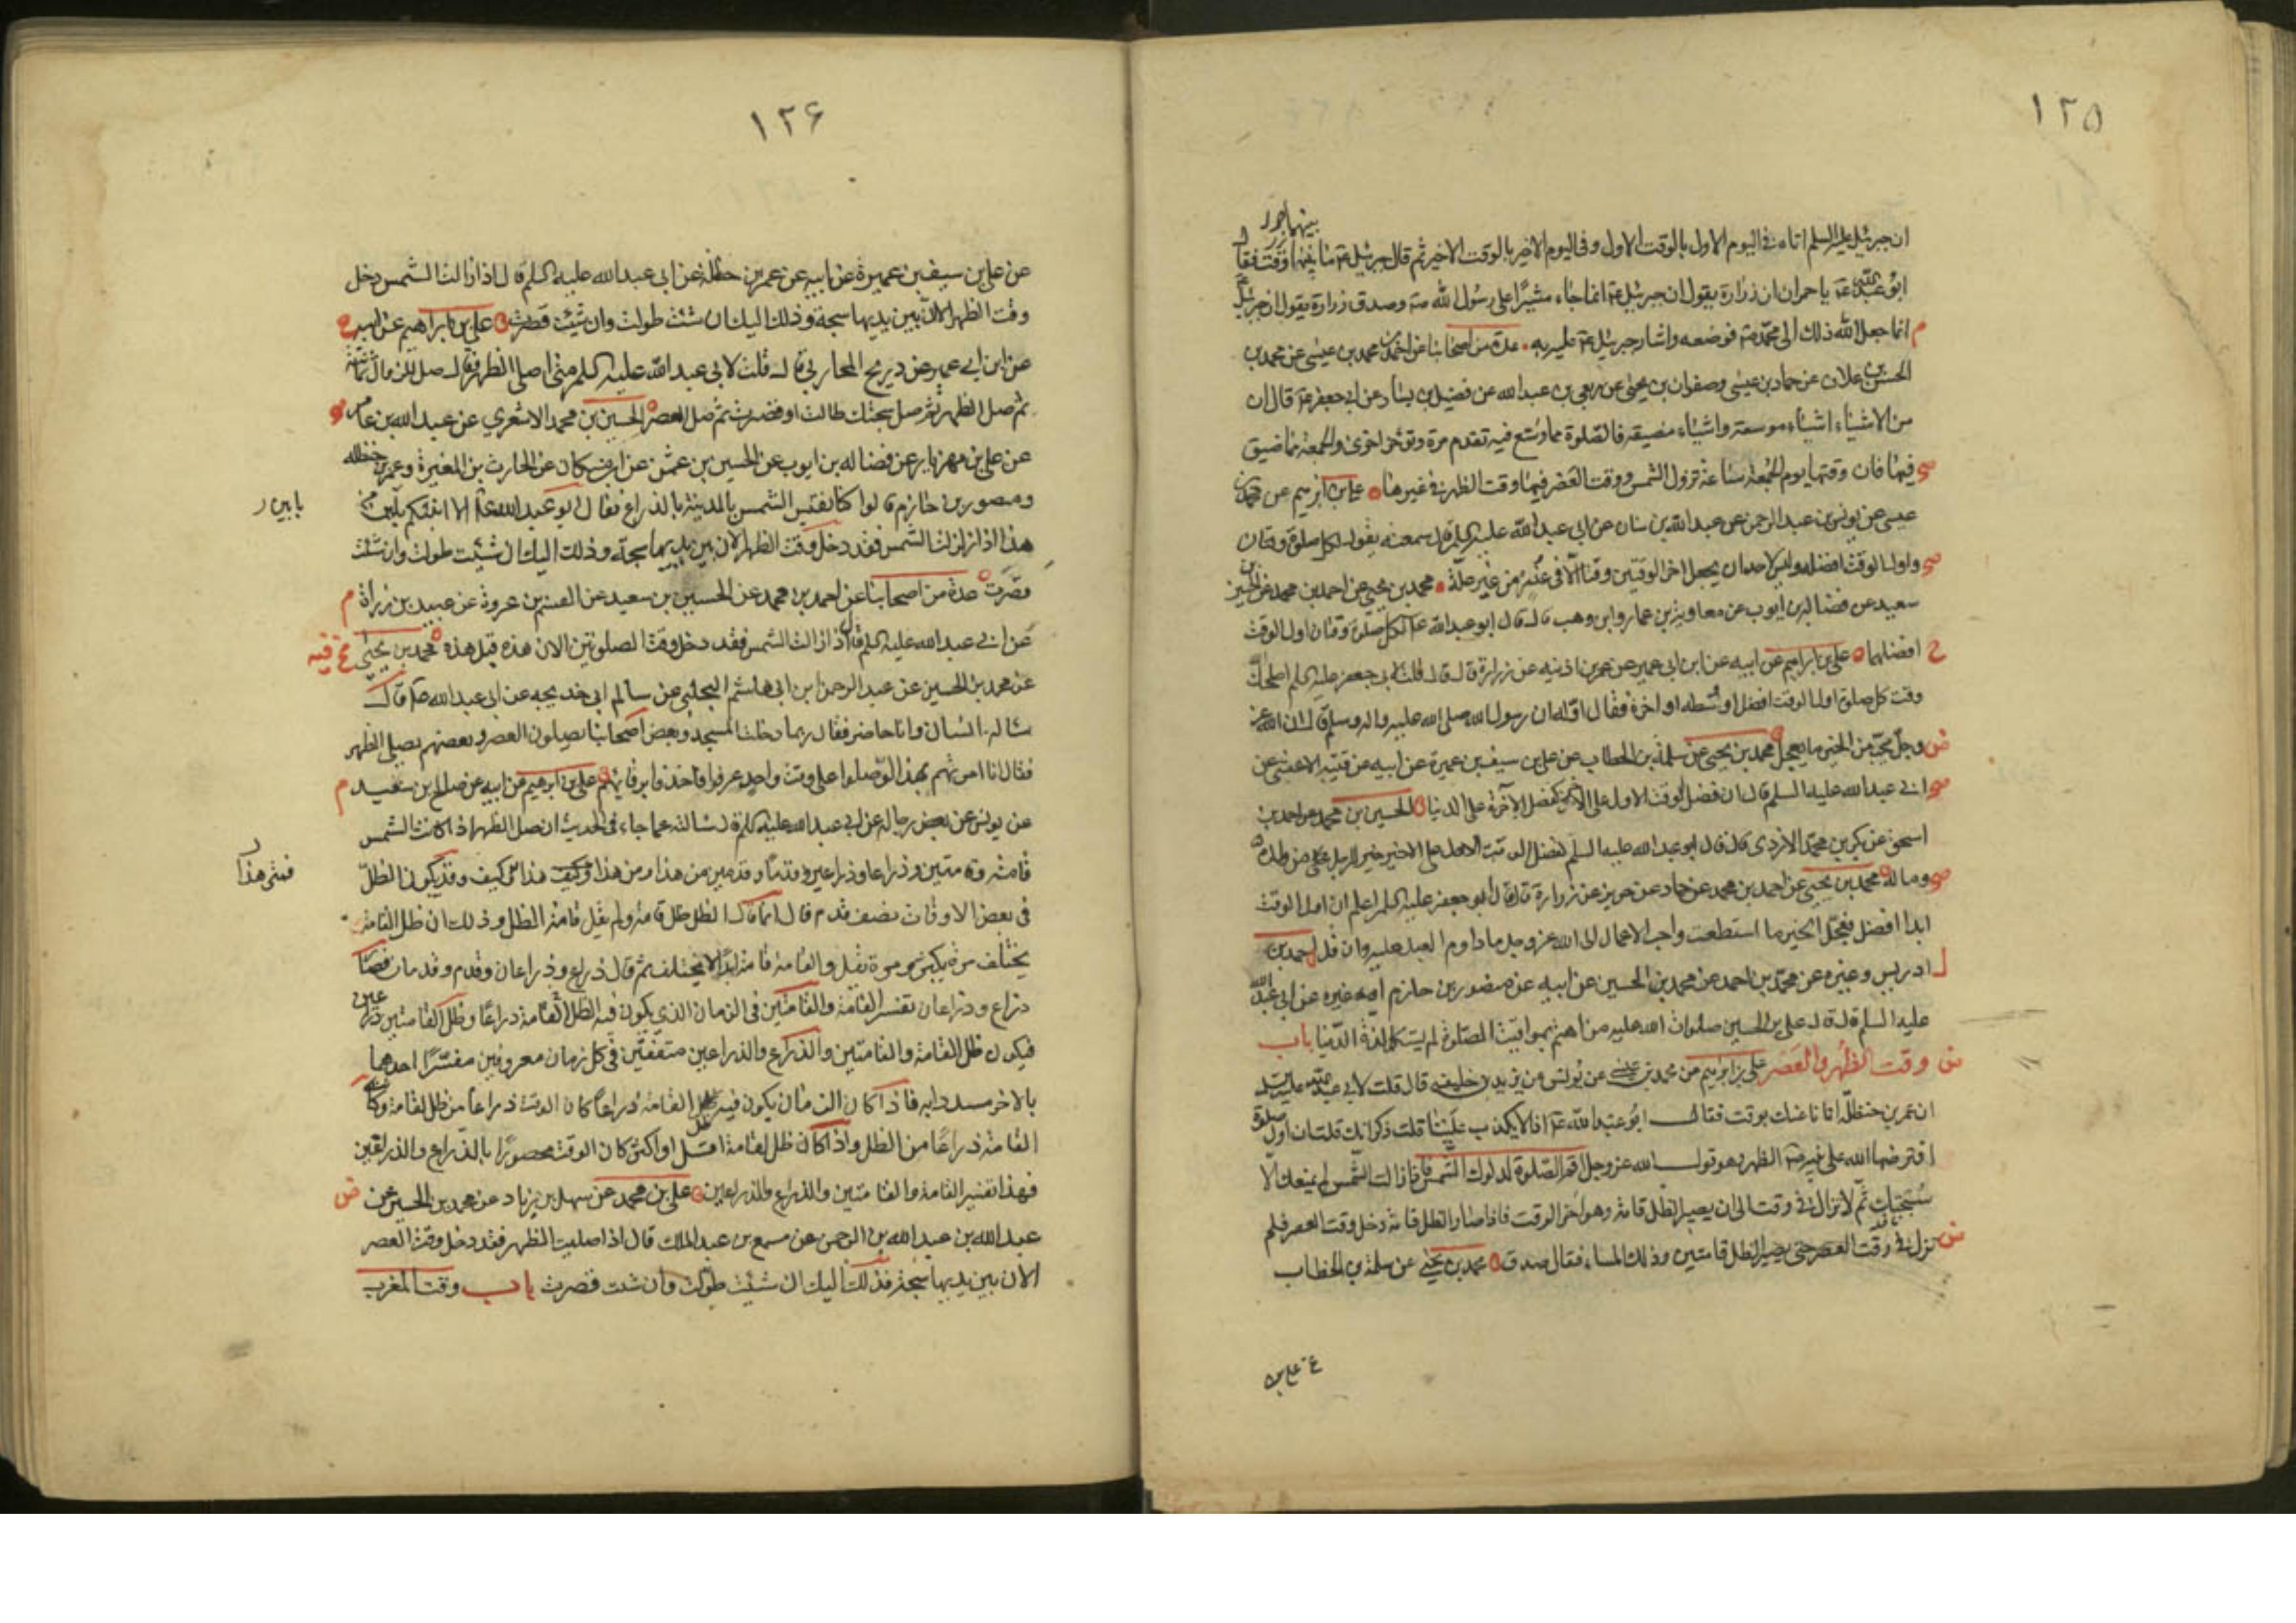 ١٢٥
بينهما
ان جبرئيل عليه السلم اتاه في اليوم الاول بالوقت الاول وفي اليوم الاخير بالوقت الاخير ثم قال جبرئيل ع ما بينهما وقت فقال
ابو عبد الله ع يا حمران ان زرارة يقول ان جبرئيل ع انما جاء مشيرا على رسول الله ص وصدق زرارة يقول ان جبرئيل
انما جعل الله ذلك الى محمد ص فوضعه واشار جبرئيل ع عليه به عدة من اصحابنا عن احمد بن محمد بن عيسى عن محمد بن
الحسن بن علان عن حماد بن عيسى وصفوان بن يحيى عن ربعي بن عبد الله عن فضيل بن يسار عن ابي جعفر ع قال ان
من الاشياء اشياء موسعة واشياء مضيقه فالصلوة مما وسع فيه تقدم مرة وتؤخر اخرى والجمعة مما ضيق
فيها فان وقتها يوم الجمعة ساعة تزول الشمس ووقت العصر فيها وقت الظهر في غيرها علي بن ابرهيم عن محمد بن
عيسى عن يونس بن عبد الرحمن عن عبد الله بن سنان عن ابي عبد الله عليه السلم قال سمعته يقول لكل صلوة وقتان
واول الوقت افضله وليس لاحد ان يجعل اخر الوقتين وقتا الا في عذر من غير علة محمد بن يحيى عن احمد بن محمد عن الحسين بن
سعيد عن فضالة بن ايوب عن معاوية بن عمار وابن وهب قال قال ابو عبد الله ع لكل صلوة وقتان اول الوقت
افضلهما علي بن ابراهيم عن ابيه عن ابن ابي عمير عن عمر بن اذينه عن زرارة قال قال قلت لابي جعفر عليه السلم اصلحك الله
وقت كل صلوة اول الوقت افضل او وسطه او اخره فقال اوله ان رسول الله صلى الله عليه واله وسلم قال ان الله عز
وجل يحب من الخير ما يعجل محمد بن يحيى عن سلمة بن الخطاب عن علي بن سيف بن عميرة عن ابيه عن قتيبه الاعشى عن
ابي عبد الله عليه السلم قال ان فضل الوقت الاول على الاخر كفضل الاخرة على الدنيا الحسين بن محمد عن احمد بن
اسحق عن بكر بن محمد الازدي قال قال ابو عبد الله عليه السلم لفضل الوقت الاول على الاخير خير للرجل من ولده
وماله محمد بن يحيى عن احمد بن محمد عن حماد عن حريز عن زرارة قال قال ابو جعفر عليه السلم اعلم ان اول الوقت
ابدا افضل فعجل الخير ما استطعت واحب الاعمال الى الله عز وجل ما داوم العبد عليه وان قل احمد بن
ادريس وغيره عن محمد بن احمد عن محمد بن الحسين عن ابيه عن منصور بن حازم او غيره عن ابي عبد الله
عليه السلم قال قال علي بن الحسين صلوات الله عليه من اهتم بمواقيت الصلوة لم يستكمل لذة الدنيا باب
وقت الظهر والعصر علي بن ابرهيم عن محمد بن عيسى عن يونس عن يزيد بن خليفه قال قلت لابي عبد الله عليه السلم
ان عمر بن حنظلة اتانا عنك بوقت فقال ابو عبد الله ع اذا لا يكذب علينا قلت ذكر انك قلت ان اول صلوة
افترضها الله على نبيه ص الظهر وهو قول الله عز وجل اقم الصلوة لدلوك الشمس فاذا زالت الشمس لم يمنعك الا
سبحتك ثم لا تزال في وقت الى ان يصير الظل قامة وهو اخر الوقت فاذا صار الظل قامة دخل وقت العصر فلم
تزل في وقت العصر حتى يصير الظل قامتين وذلك المساء فقال صدق محمد بن يحيى عن سلمة بن الخطاب
عن علي بن
١٢۶
عن علي بن سيف بن عميرة عن ابيه عن عمر بن حنظلة عن ابي عبد الله عليه السلم قال اذا زالت الشمس دخل
وقت الظهر الا ان بين يديها سبحة وذلك اليك ان شئت طولت وان شئت قصرت علي بن ابراهيم عن ابيه
عن ابن ابي عمير عن ذريح المحاربي قال قلت لابي عبد الله عليه السلم متى اصلي الظهر فقال صل الزوال ثمانية
ثم صل الظهر ثم صل سبحتك طالت او قصرت ثم صل العصر الحسين بن محمد الاشعري عن عبد الله بن عامر
عن علي بن مهزيار عن فضاله بن ايوب عن الحسين بن عثمن عن ابن مسكان عن الحارث بن المغيرة وعمر بن حنظله
ومنصور بن حازم قالوا كنا نقيس الشمس بالمدينة بالذراع فقال ابو عبد الله ع الا انبئكم بابين من
بابين
هذا اذا زالت الشمس فقد دخل وقت الظهر الا ان بين يديها سبحة وذلك اليك ان شئت طولت وان شئت
قصرت عدة من اصحابنا عن احمد بن محمد عن الحسين بن سعيد عن القسم بن عروة عن عبيد بن زرارة
عن ابي عبد الله عليه السلم قال اذا زالت الشمس فقد دخل وقت الصلوتين الا ان هذه قبل هذه محمد بن يحيى
عن محمد بن الحسين عن عبد الرحمن ابن ابي هاشم البجلي عن سالم ابي خديجه عن ابي عبد الله ع قال
ساله انسان وانا حاضر فقال ربما دخلت المسجد وبعض اصحابنا يصلون العصر وبعضهم يصلي الظهر
فقال انا امرتهم بهذا لو صلوا على وقت واحد عرفوا فاخذوا برقابهم علي بن ابرهيم عن ابيه عن صالح بن سعيد
عن يونس عن بعض رجاله عن ابي عبد الله عليه السلم قال سالته عما جاء في الحديث ان صل الظهر اذا كانت الشمس
قامة وقامتين وذراعا وذراعين وقدما وقدمين من هذا ومن هذا وكيف هذا وقد يكون الظل
فمتى هذا
في بعض الاوقات نصف قدم قال انما قال ظل القامة ولم يقل قامة الظل وذلك ان ظل القامة
يختلف مرة يكثر ومرة يقل والقامة قامة ابدا لا يختلف ثم قال ذراع وذراعان وقدم وقدمان فصار
ذراع وذراعان تفسير القامة والقامتين في الزمان الذي يكون فيه الظل القامة ذراعا وظل القامتين ذراعين
فيكون ظل القامة والقامتين والذراع والذراعين متفقين في كل زمان معروفين مفسرا احدهما
بالاخر مسددا به فاذا كان الزمان يكون فيه ظل القامة ذراعا كان الوقت ذراعا من ظل القامة وكانت
القامة ذراعا من الظل واذا كان ظل القامة اقل او اكثر كان الوقت محصورا بالذراع والذراعين
فهذا تفسير القامة والقامتين والذراع والذراعين علي بن محمد عن سهل بن زياد عن محمد بن الحسين عن
عبد الله بن عبد الرحمن عن مسمع بن عبد الملك قال اذا صليت الظهر فقد دخل وقت العصر
الا ان بين يديها سبحة فذلك اليك ان شئت طولت وان شئت قصرت باب وقت المغرب